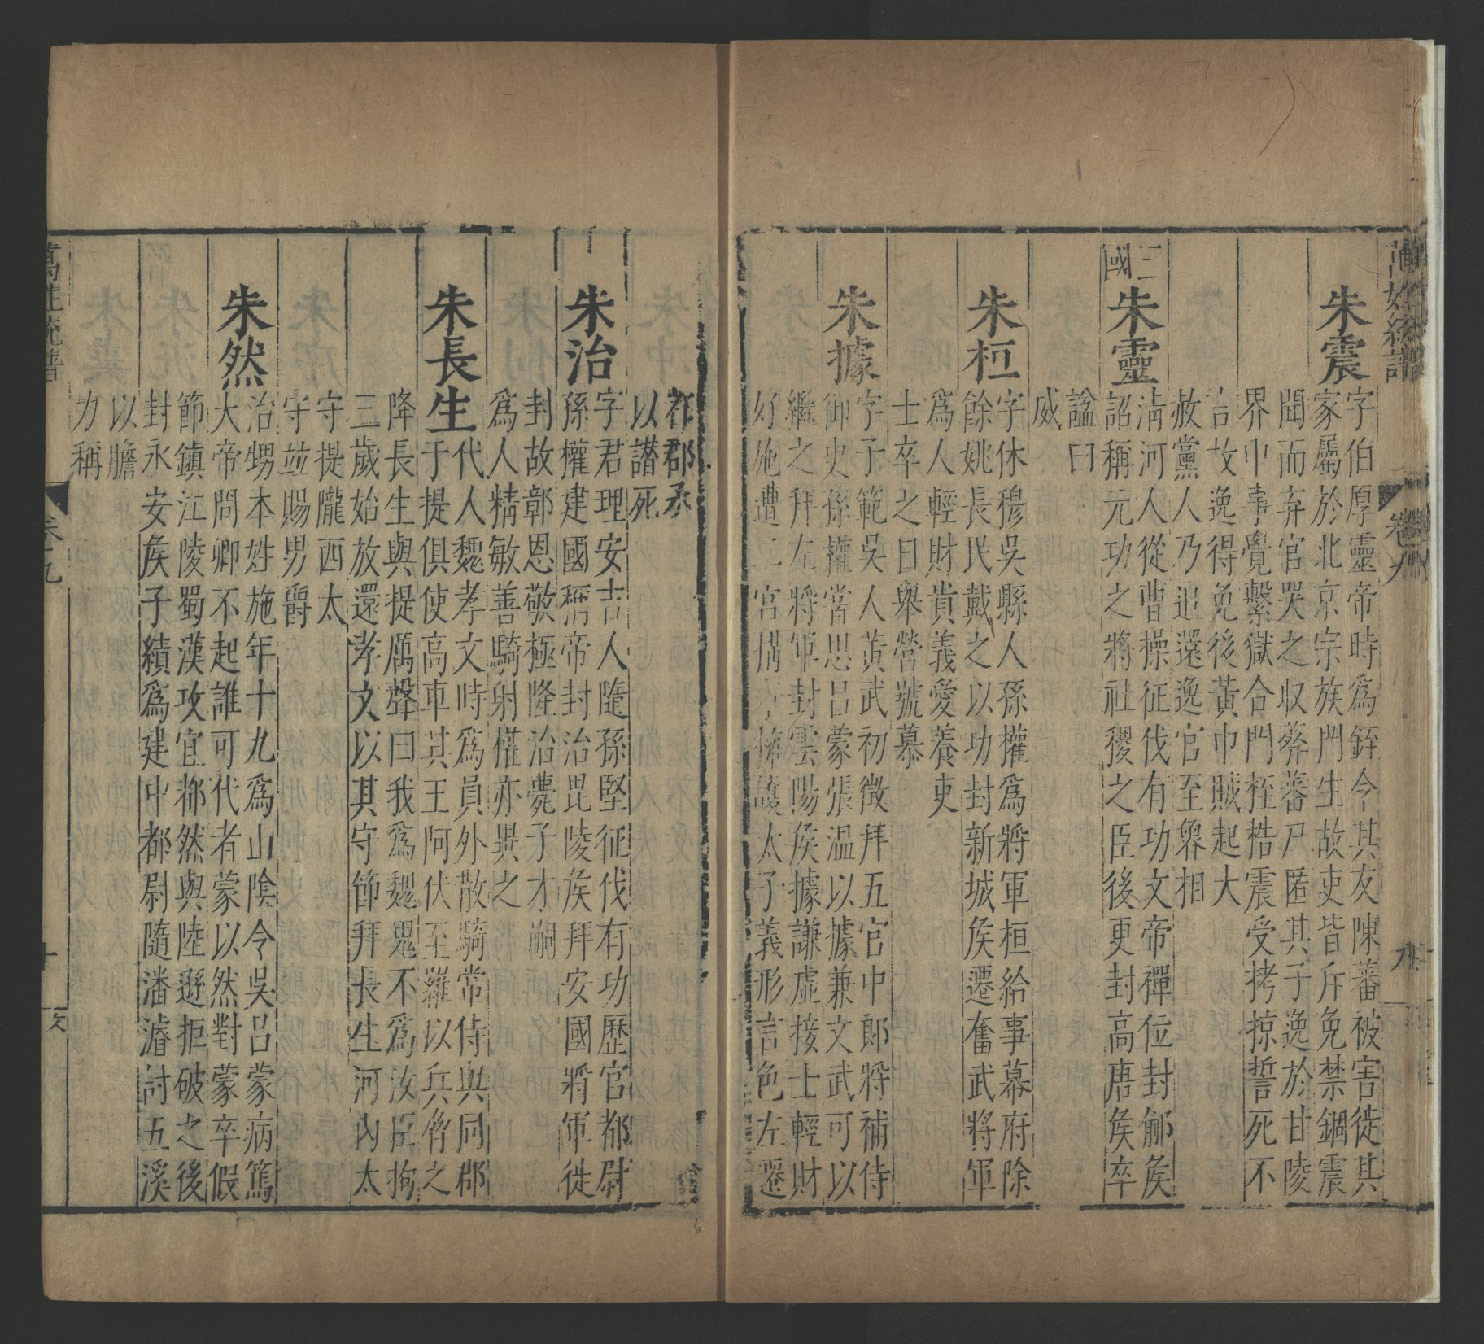 萬姓統譜 卷九 九
朱震 字伯厚靈帝時爲銍令其友陳蕃被害徙其
家屬於北京宗族門生故吏皆斥免禁錮震
聞而弃官哭之収葬蕃尸匿其子逸於甘陵
界中事覺繫獄合門桎梏震受拷掠誓死不
言故逸得免後黃巾賊起大
赦黨人乃追還逸官至魯相
三國
朱靈 清河人從曹操征伐有功文帝禪位封鄃矦
詔稱元功之將社稷之臣後更封高唐矦卒
諡曰
威
朱桓 字休穆吳縣人孫權爲將軍桓給事幕府除
餘姚長民戴之以功封新城矦遷奮武將軍
爲人輕財貴義愛養吏
士卒之日舉營號慕
朱據 字子範吳人黃武初徵拜五官中郎將補侍
御史孫權嘗思呂蒙張溫以據兼文武可以
繼之拜左將軍封雲陽矦據謙虛接士輕財
好施遭二宮搆爭擁護太子義形言色左遷
郡丞
以譖死
朱治 字君理安吉人隨孫堅征伐有功歷官都尉
孫權建國稱帝封治毘陵矦拜安國將軍徙
封故鄣恩敬極隆治薨子才嗣
爲人精敏善騎射權亦異之
朱長生 代人魏孝文時爲員外散騎常侍與同郡
于提俱使高車其王阿伏至羅以兵脅之
降長生與提厲聲曰我爲魏鬼不爲汝臣拘
三歲始放還孝文以其守節拜長生河內太
守提隴西太
守竝賜男爵
朱然 治甥本姓施年十九爲山陰令吳呂蒙病篤
大帝問卿不起誰可代者蒙以然對蒙卒假
節鎮江陵蜀漢攻宜都然與陸遜拒破之後
封永安矦子績爲建中都尉隨潘濬討五溪
以膽
力稱
萬姓統譜 卷九 十